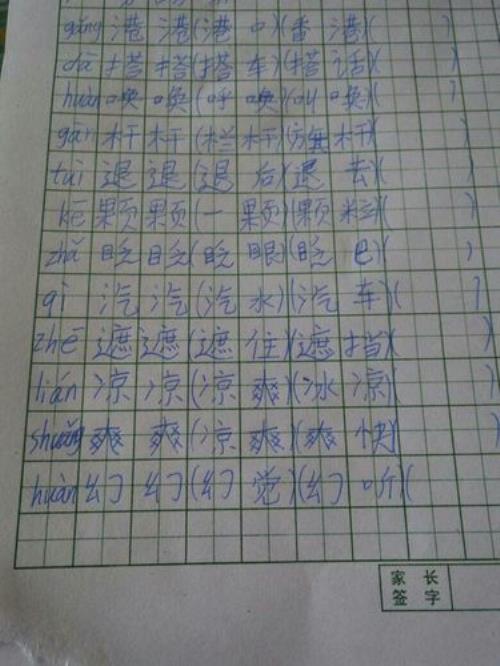 gǎng 港 港 (港 口) (香 港) ( )
dā 搭 搭 (搭 车) (搭 话) ( )
huàn 唤 唤 (呼 唤) (叫 唤) ( )
gān 杆 杆 (栏 杆) (旗 杆) ( )
tuì 退 退 (退 后) (退 去) ( )
kē 颗 颗 (一 颗) (颗 粒) ( )
zhǎ 眨 眨 (眨 眼) (眨 巴) ( )
qì 汽 汽 (汽 水) (汽 车) ( )
zhē 遮 遮 (遮 住) (遮 挡) ( )
lián 凉 凉 (凉 爽) (冰 凉) ( )
shuǎng 爽 爽 (凉 爽) (爽 快) ( )
huàn 幻 幻 (幻 觉) (幻 听) (
家 长
签 字